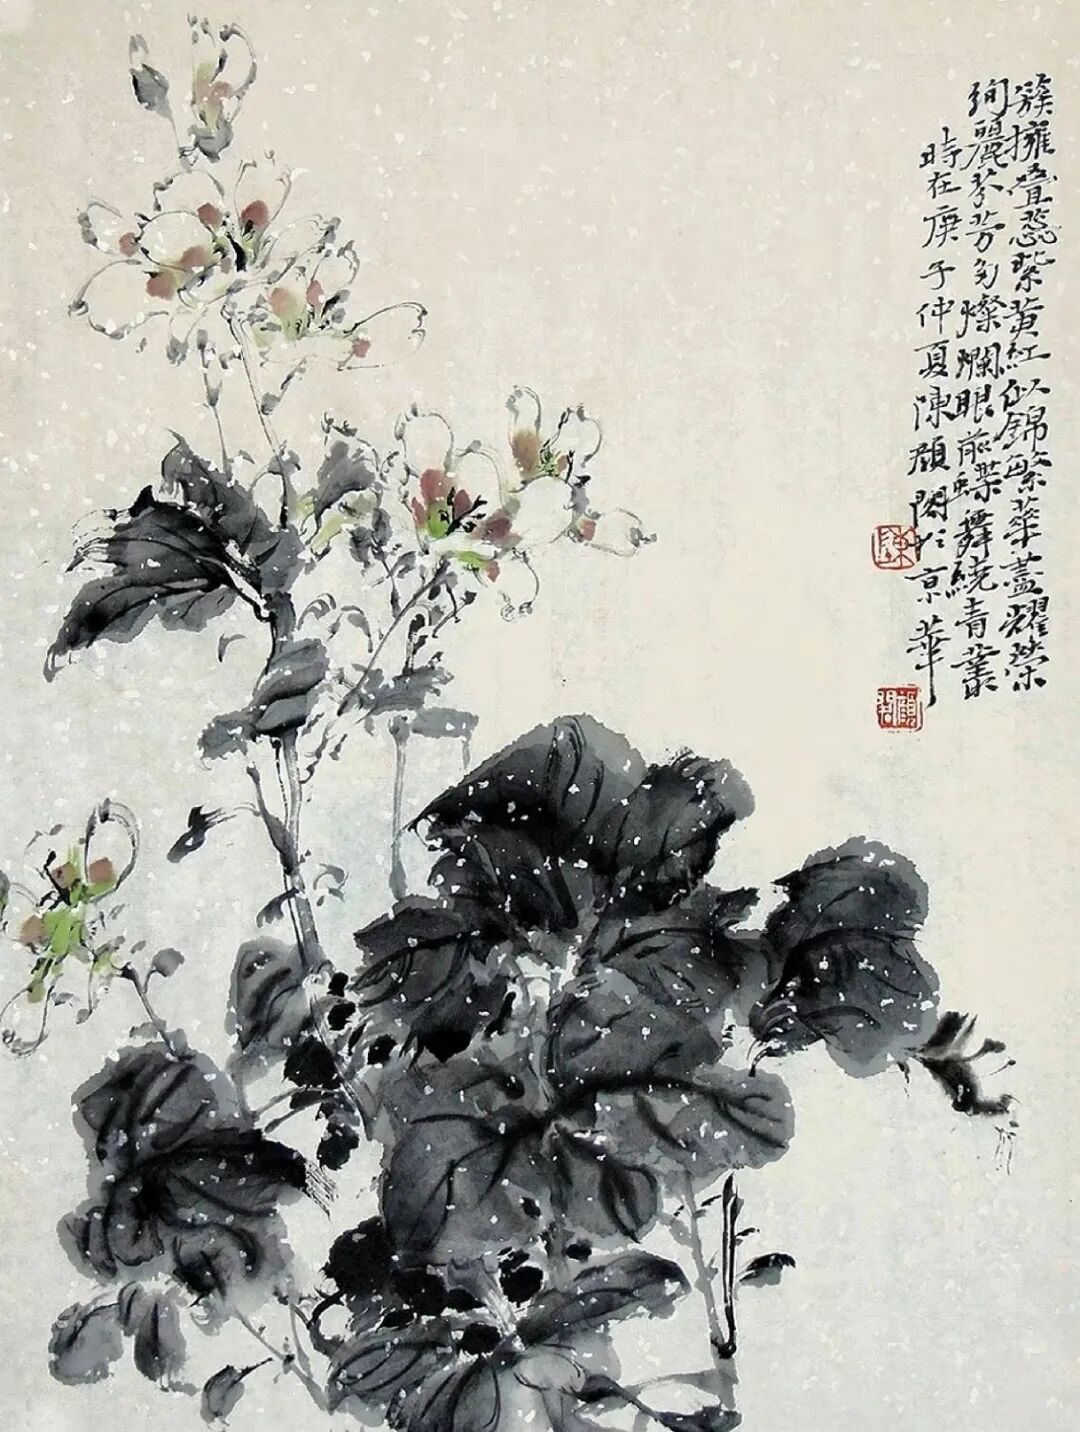 簇擁叠蕊紫黃紅似錦繁華蓋耀榮
絢麗芬芳多燦爛眼前蝶舞繞青叢
時在庚子仲夏陳顏閣於京華
陳
顏閣